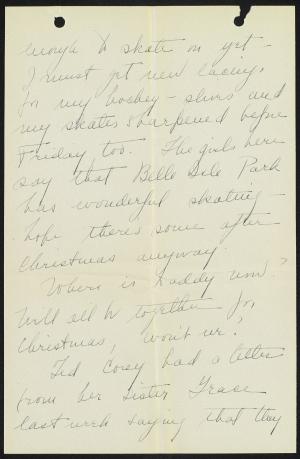 enough to skate on yet -
I must get new lacings
for my hockey - shoes and
my skates sharpened before
Friday too. The girls here
say that Belle Isle Park
has wonderful skating -
hope there's some after
Christmas anyway.
Where is Daddy now?
Will all be together for
Christmas, won't we?
Ted had a letter
from her sister Grace
last week saying that they